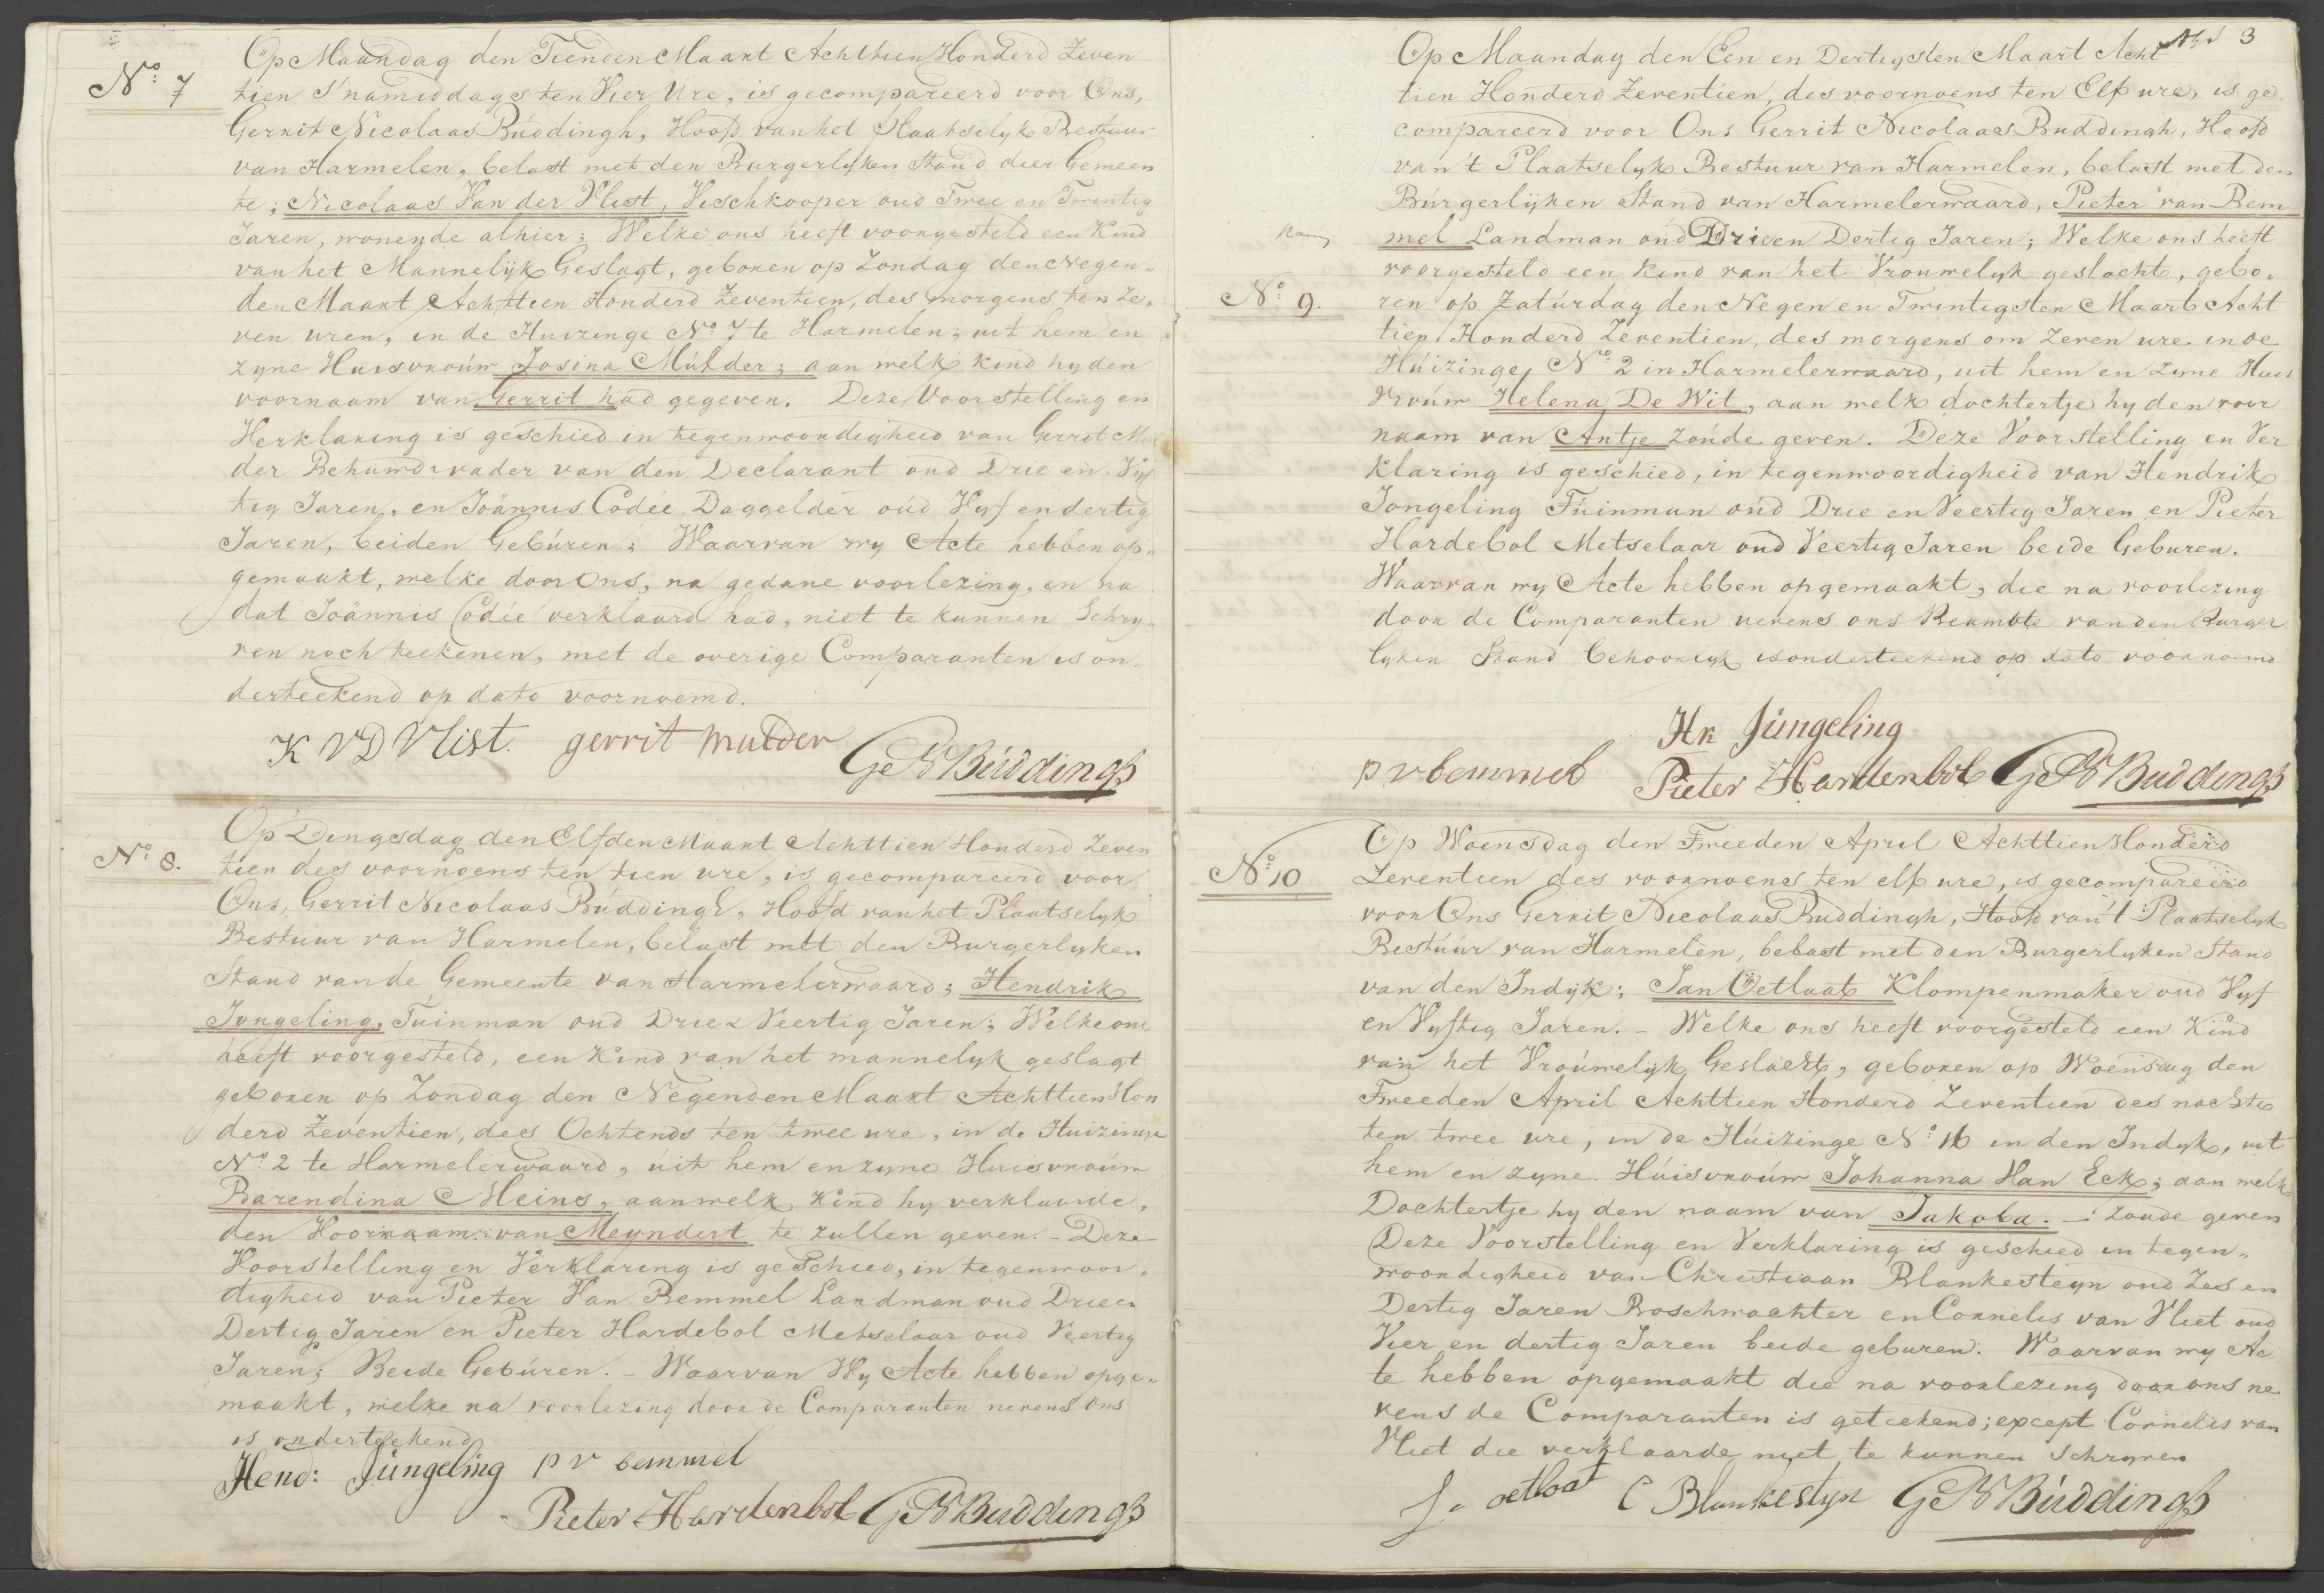 Nº 7
Op Maandag den Tienden Maart Achttien Honderd Zeven
tien S'namiddags ten Vier Ure, is gecompareerd voor Ons,
Gerrit Nicolaas Búddingh, Hoofd van het Plaatselyk Bestuur
van Harmelen, belast met den Burgerlyken Stand dier Gemeen
te; Nicolaas Van der Vlist, Vischkooper oud Twee en Twintig
Jaren, wonende alhier; Welke ons heeft voorgesteld een Kind
van het Mannelijk Geslagt, geboren op Zondag den Negen„
den Maart Achttien Honderd Zeventien, des morgens ten Ze„
ven uren, in de Huizinge Nº 7 te Harmelen; uit hem en
zyne Huisvroúw Josina Múlder; aan welk kind hy den
voornaam van Gerrit had gegeven. Deze Voorstelling en
Verklaring is geschied in tegenwoordigheid van Gerret Mul
der Behuwdvader van den Declarant oud Drie en Vijf
tig Jaren, en Joännis Codéé Daggelder oúd Vyf en dertig
Jaren, beiden Gebúren; Waarvan wy Acte hebben op„
gemaakt, welke door Ons, na gedane voorlezing, en na
dat Joännis Codéé verklaard had, niet te kunnen Schry„
ven noch teekenen, met de overige Comparanten is on„
derteekend op dato voornoemd.
K V D Vlist. gerrit mulder
G N Búddingh
Nº 8.
Op Dingsdag den Elfden Maart Achttien Honderd Zeven
tien des voornoens ten tien ure, is gecompareerd voor
Ons, Gerrit Nicolaas Búddingh, Hoofd van het Plaatselyk
Bestuur van Harmelen, belast mett den Burgerlyken
Stand van de Gemeente van Harmelerwaard; Hendrik
Jongeling, Túinman oud Drie & Veertig Jaren; Welke ons
heeft voorgesteld, een Kind van het mannelyk geslagt
geboren op Zondag den Negenden Maart Achttien Hon
derd Zeventien, des Ochtends ten twee ure, in de Huizinge
Nº 2 te Harmelerwaard, úit hem en zyne Huisvroúw
Barendina Meins, aan welk Kind hy verklaarde,
den Voornaam van Meyndert te zullen geven. – Deze
Voorstelling en Verklaring is geschied, in tegenwoor„
digheid van Pieter Van Bemmel Landman oud Drieen
Dertig Jaren en Pieter Hardebol Metselaar oud Veertig
Jaren; Beide Gebúren. – Waarvan Wy Acte hebben opge„
maakt, welke na voorlezing door de Comparanten nevens ons
is onderteekend
Hend: Jüngeling p v bemmel
Pieter Hardenbol G N Buddingh
3
Op Maandag den Een en Dertigsten Maart Acht
tien Honderd Zeventien, des voornoens ten Elf ure, is ge
compareerd voor Ons Gerrit Nicolaas Buddingh, Hoofd
van't Plaatselyk Bestuur van Harmelen, belast met den
Búrgerlijken Stand van Harmelerwaard, Pieter van Bem
mel Landman oúd Drieen Dertig Jaren; Welke ons heeft
voorgesteld een Kind van het Vrouwelyk geslacht, gebo„
Nº 9.
ren op Zatúrdag den Negen en Twintigsten Maart Acht
tien Honderd Zeventien, des morgens om Zeven ure in de
Húizinge Nrº 2 in Harmelerwaard, uit hem en zyne Huis
Vroúw Helena De Wit, aan welk dochtertje hy den voor
naam van Antje zoúde geven. Deze Voorstelling en Ver
klaring is geschied, in tegenwoordigheid van Hendrik
Jongeling Túinman oúd Drie en Veertig Jaren en Pieter
Hardebol Metselaar oud Veertig Jaren beide Geburen.
Waarvan wy Acte hebben opgemaakt, die na voorlezing
door de Comparanten nevens ons Beambte van den Burger
lyken Stand behoorlyk is onderteekend op dato voornoemd
Hk Jüngeling
p v bemmel Pieter Hardenbol G N Buddingh
Nº 10
Op Woensdag den Tweeden April Achttien Honderd
Zeventien des voornoens ten elf ure, is gecompareerd
voor Ons Gerrit Nicolaas Buddingh, Hoofd van't Plaatselyk
Bestúúr van Harmelen, belast met den Burgerlyken Stand
van den Indyk; Jan Oetlaat Klompenmaker oud Vyf
en Vyftig Jaren. – Welke ons heeft voorgesteld een Kind
van het Vroúwelyk Geslacht, geboren op Woensdag den
Tweeden April Achttien Honderd Zeventien des nachts
ten twee ure, in de Húizinge Nº 16 in den Indyk, uit
hem en zyne Húisvroúw Johanna Van Eck; aan welk
Dochtertje hy den naam van Jakoba. – zoude geven
Deze Voorstelling en Verklaring is geschied in tegen„
woordigheid van Christiaan Blankesteyn oud Zes en
Dertig Jaren Boschwachter en Cornelis van Vliet oud
Vier en dertig Jaren beide geburen. Waarvan wy Ac
te hebben opgemaakt die na voorlezing door ons ne
vens de Comparanten is geteekend; except Cornelis van
Vliet die verklaarde niet te kunnen schryven
J. oetlaat C Blankestyn G N Búddingh